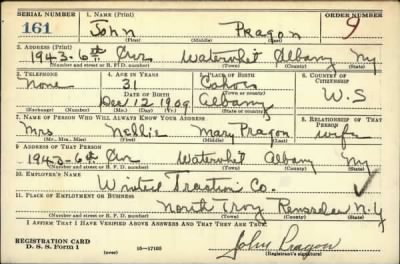 SERIAL NUMBER 1. NAME (Print) ORDER NUMBER
161 John Pragon 9
(First) (Middle) (Last)
2. ADDRESS (Print)
1943-6th Ave Watervliet Albany Ny
(Number and street or R. F. D. number) (Town) (County) (State)
3. TELEPHONE 4. AGE IN YEARS 5. PLACE OF BIRTH 6. COUNTRY OF CITIZENSHIP
None 31 Cohoes
DATE OF BIRTH (Town or county)
Dec 12 1909 Albany U.S
(Exchange) (Number) (Mo.) (Day) (Yr.) (State or country)
7. NAME OF PERSON WHO WILL ALWAYS KNOW YOUR ADDRESS 8. RELATIONSHIP OF THAT PERSON
Mrs Nellie Mary Pragon wife
(Mr., Mrs., Miss) (First) (Middle) (Last)
9. ADDRESS OF THAT PERSON
1943-6th Ave Watervliet Albany Ny
(Number and street or R. F. D. number) (Town) (County) (State)
10. EMPLOYER'S NAME
United Traction Co.
11. PLACE OF EMPLOYMENT OR BUSINESS
North Troy N.Y
(Number and street or R. F. D. number) (Town) (County) (State)
I AFFIRM THAT I HAVE VERIFIED ABOVE ANSWERS AND THAT THEY ARE TRUE.
REGISTRATION CARD
D. S. S. Form 1 (over) 16—17105 John Pragon
(Registrant's signature)